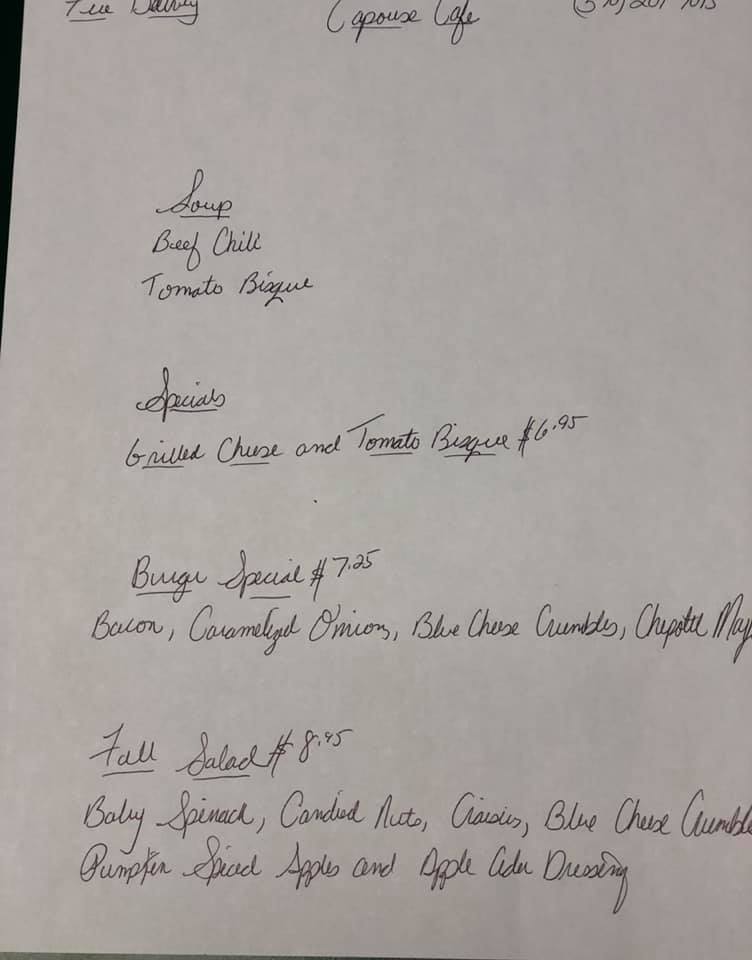 Free Delivery Capouse Cafe
Soup
Beef Chili
Tomato Bisque
Specials
Grilled Cheese and Tomato Bisque $6.95
Burger Special $7.25
Bacon, Caramelized Onions, Blue Cheese Crumbles, Chipotle May
Fall Salad $8.95
Baby Spinach, Candied Nuts, Craisins, Blue Cheese Crumble
Pumpkin Spiced Apples and Apple Cider Dressing